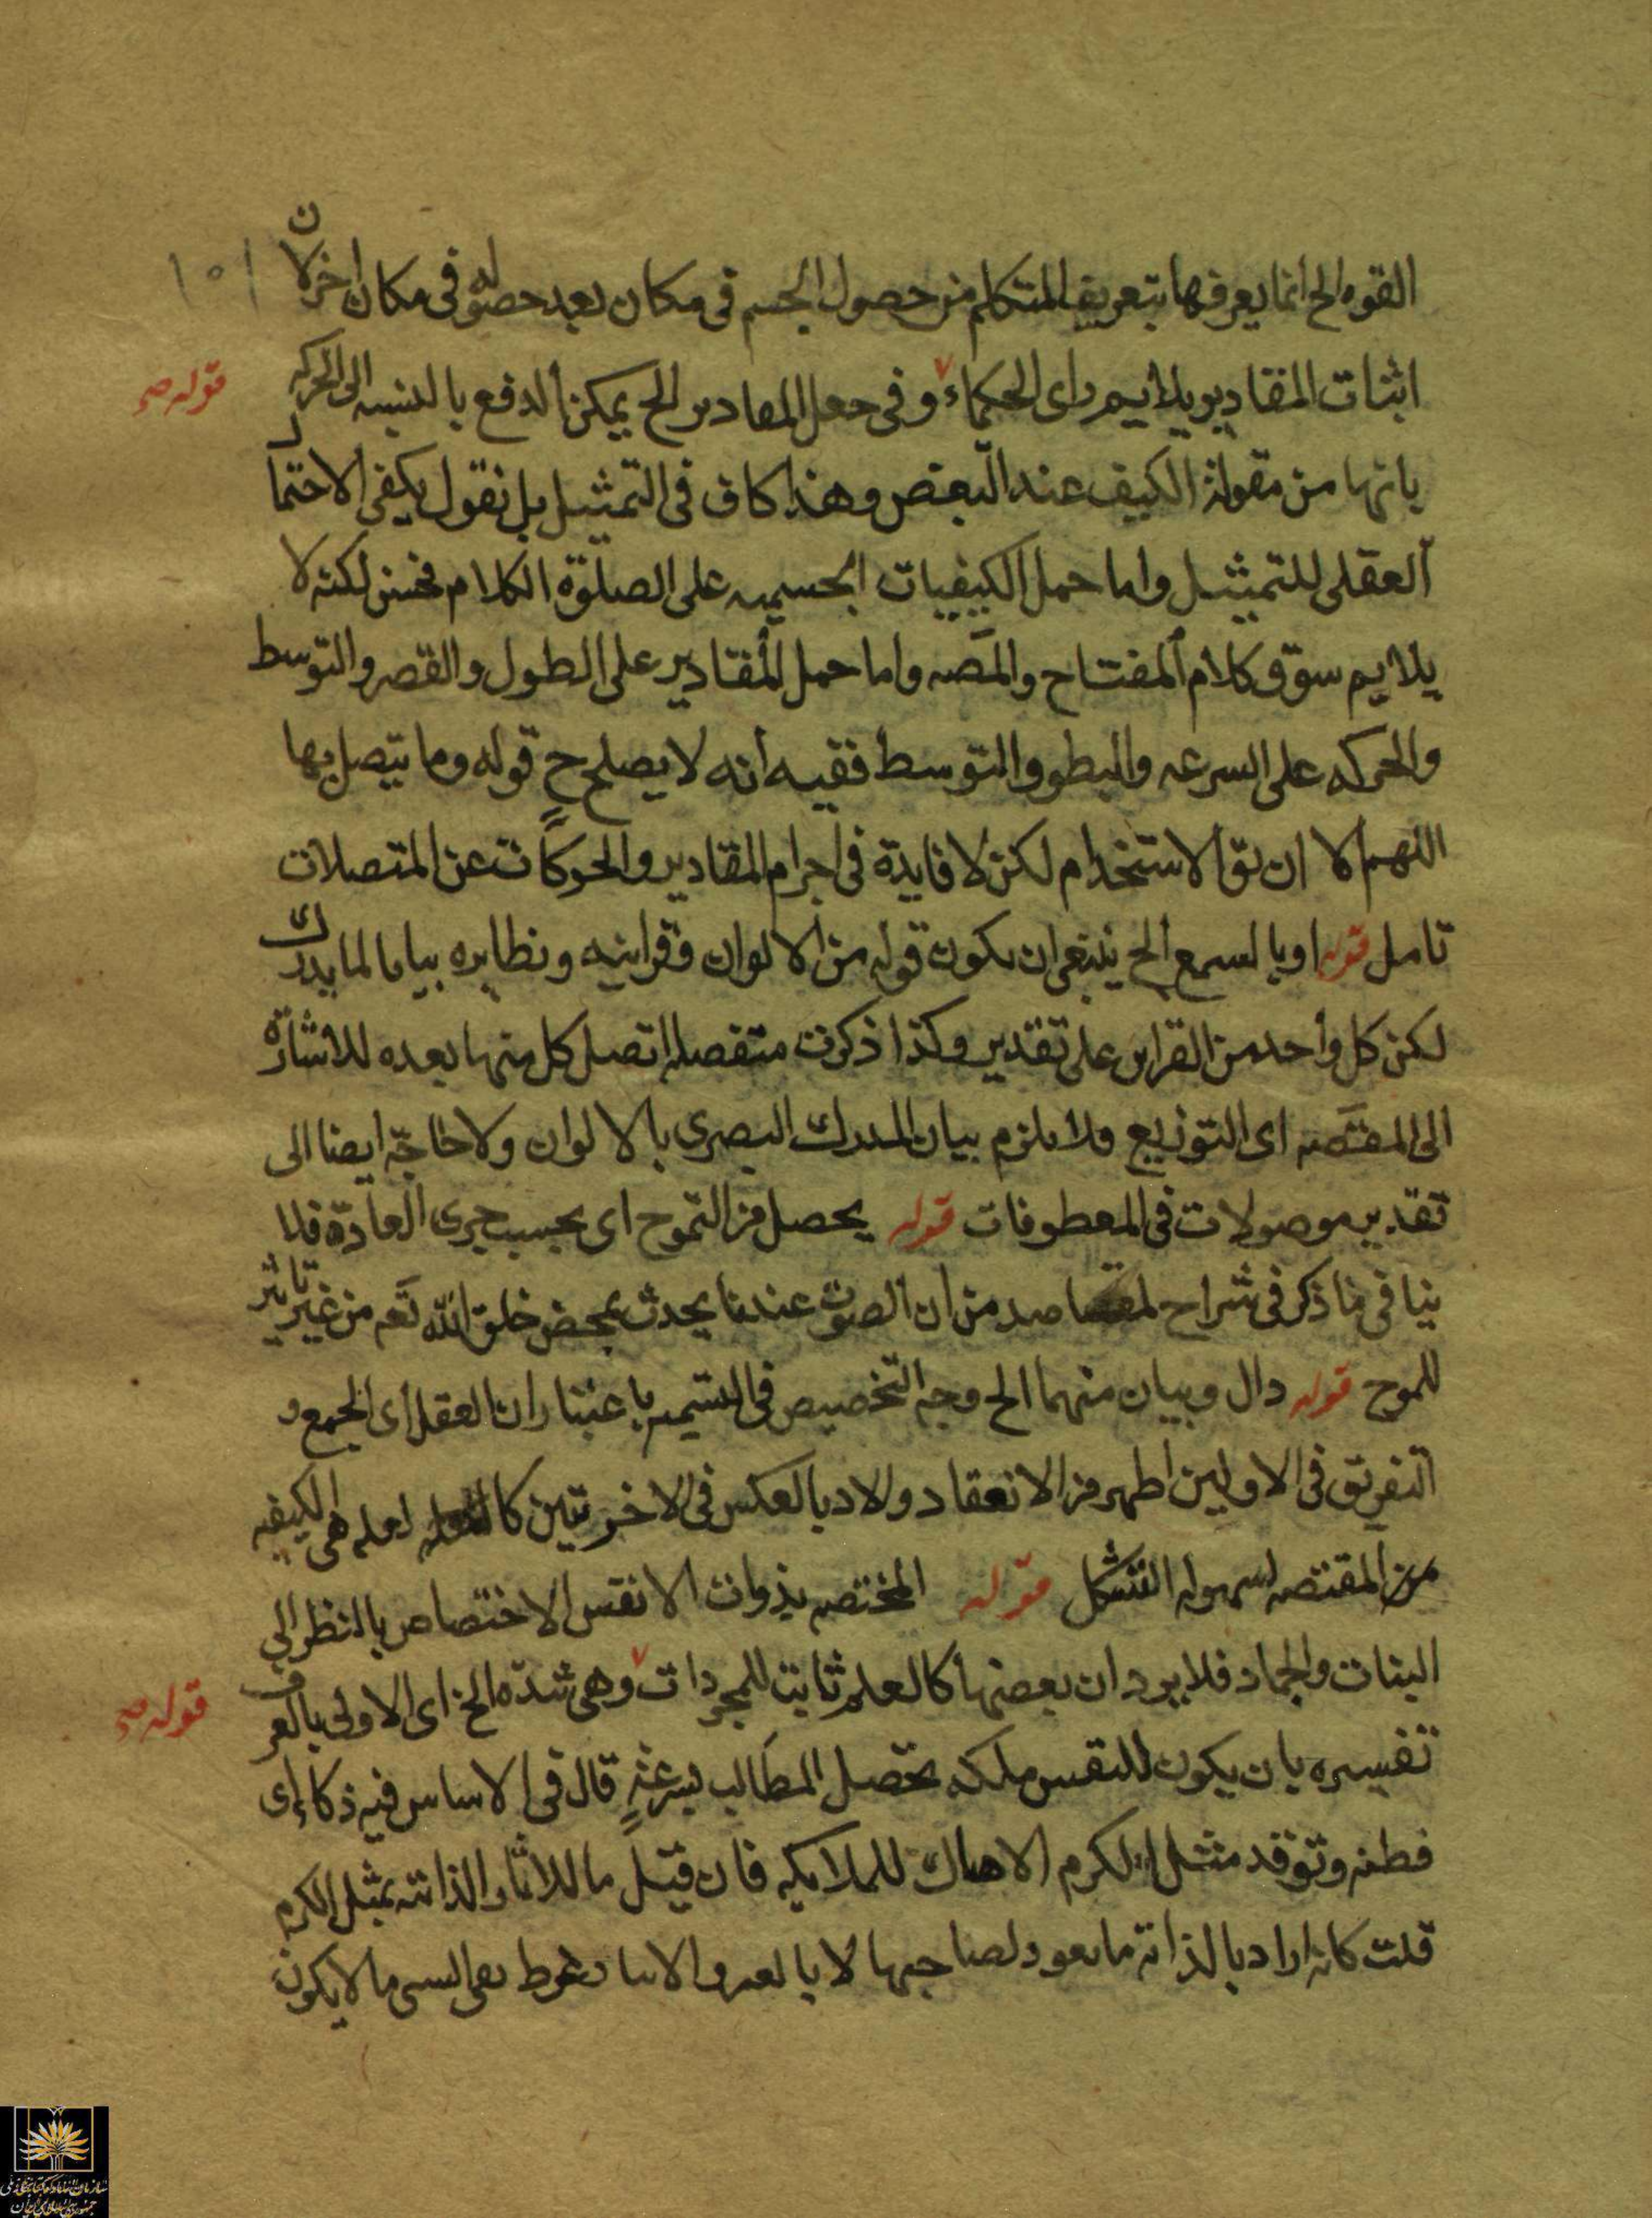 القوه الخ انما يعرفها بتعريف المتكلم من حصول الجسم فى مكان بعد حصوله فى مكان اخر لان
اثبات المقادير يلايم راى الحكماء وفى جعل المقادير الخ يمكن الدفع بالنسبه الى الحركه
قوله صح
بانها من مقولة الكيف عند البعض وهذا كاف فى التمثيل بل نقول يكفى الاحتمال
العقلى للتمثيل واما حمل الكيفيات الجسميه على الصلوة الكلام فحسن لكنه لا
يلايم سوق كلام المفتاح والمصه واما حمل المقادير على الطول والقصر والتوسط
والحركه على السرعه والبطو والتوسط ففيه انه لا يصلح ح قوله وما يتصل بها
اللهم الا ان يق الاستخدام لكن لا فايدة فى اجرام المقادير والحركات عن المتصلات
تامل قوله او بالسمع الخ ينبغى ان يكون قوله من الالوان وقراينه ونظايره بيانا لما يدرك
لكن كل واحد من القراين على تقدير وكذا ذكرت متفصله اتصل كل منها بعده للاشارة
الى المقتصه اى التوزيع ولا يلزم بيان المدرك البصرى بالالوان ولا حاجة ايضا الى
تقدير موصولات فى المعطوفات قوله يحصل من التموج اى بحسب جرى العادة فلا
ينافى ما ذكر فى شراح لمقاصد من ان الصوت عندنا يحدث بمحض خلق الله تعم من غير تاثير
للموج قوله دال وبيان منهما الخ وجه التخصيص فى التسميه باعتبار ان العقل اى الجمع و
التفريق فى الاوليين اظهر من الانعقاد والاد بالعكس فى الاخرتين لعله هى الكيفيه
من المقتصه لسهوله التشكل قوله المختصه بذوات الانفس الاختصاص بالنظر الى
النبات والجماد فلا يرد ان بعضها كالعلم ثابت للمجردات وهى شده الخ اى الاولى بالعرف
قوله صح
تفسيره بان يكون للنفس ملكه تحصل المطالب بسرعة قال فى الاساس فيه ذكاء اى
فطنه وتوقد مثل الكرم الا هناك للملايكه فان قيل ما للاثار الذاتيه بمثل الكرم
قلت كانه اراد بالذاتيه ما يعود لصاحبها لا بالغير والا بقى السى ما لا يكون